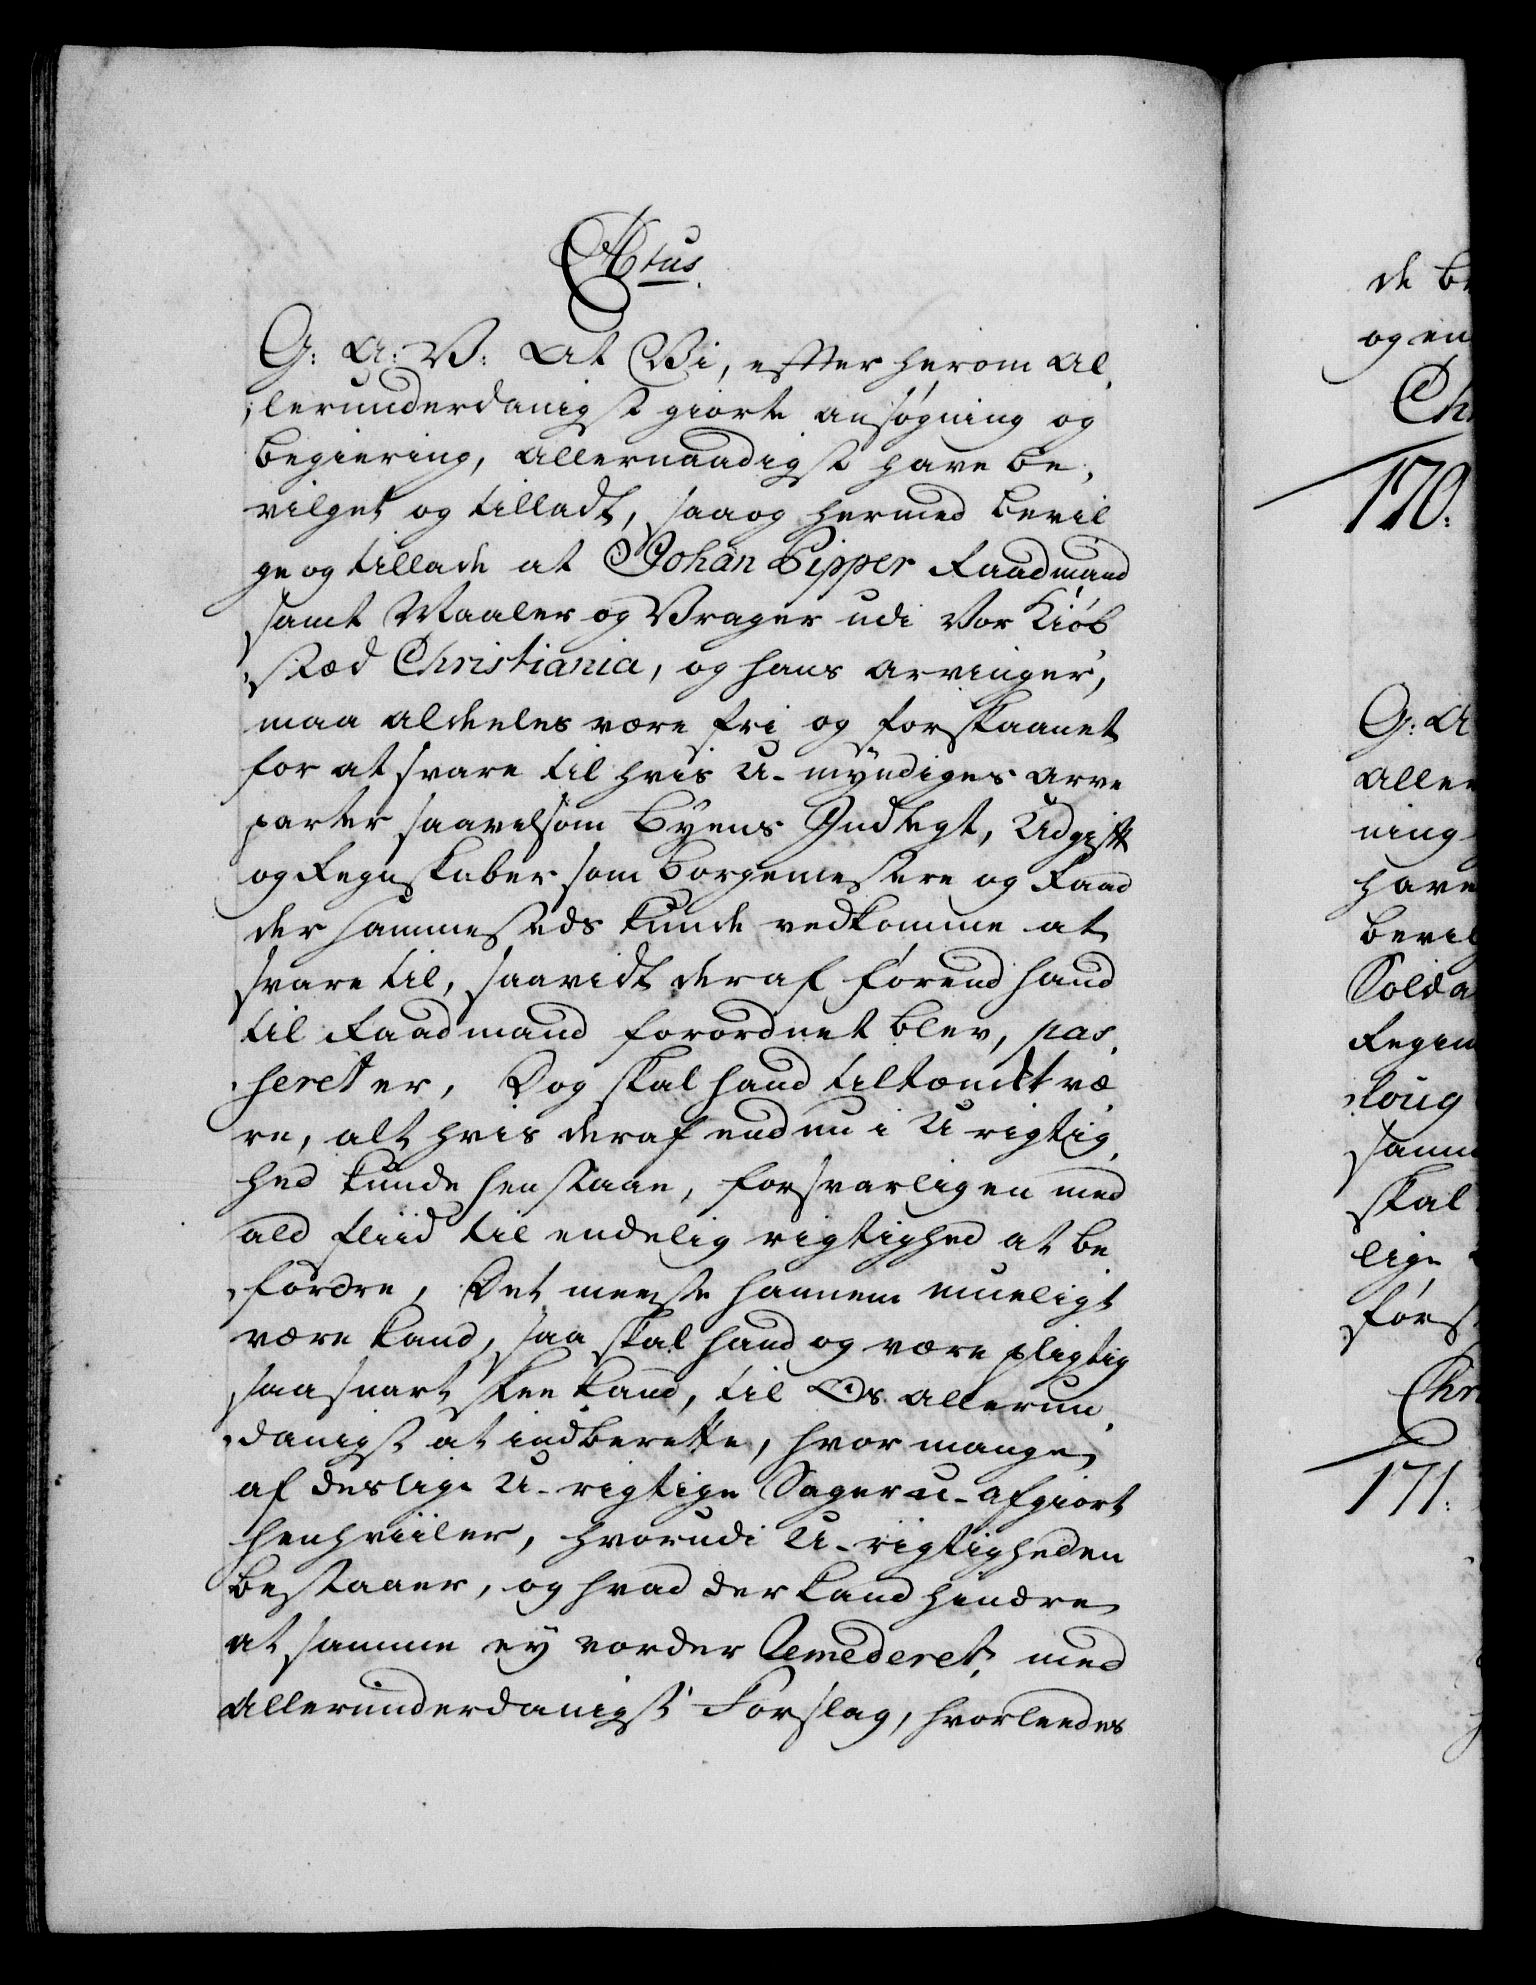 C5tus.
G: A: V: At Vi, effter herom al¬
lerunderdanigst giorte ansøgning og
begiering, allernaadigst have be¬
vilget og tilladt, saa og hermed bevil
ge og tillade at Johan Pipper Raadmand
samt Maaler og Vrager udi Vor Kiøb
stæd Christiania, og hans arvinger,
maa aldeeles være fri og forskaanet
for at svare til hvis U-myndiges arve
parter saavelsom Byens Indtegt, Udgifft
og Regnskaber som Borgemestere og Raad
der sammesteds kunde vedkomme at
svare til, saavidt deraf førend hand
til Raadmand forordnet blev, pas¬
seret er, Dog skal hand tiltænckt væ¬
re, alt hvis deraf endnu i U rigtig¬
hed kunde henstaae, forsvarligen med
ald fliid til endelig rigtighed at be
fordre, Det meeste hannem mueligt
være kand, saa skal hand og være pligtig
saasnart skee kand, til Os allerun¬
danigst at indberette, hvor mange
af deslige U-rigtige Sager u-afgiort
henhviiler, hvorudi U-rigtigheden
bestaaer, og hvad der kand hindre
at samme ey vorder Remederet, med
allerunderdanigst Forslag, hvorleedes
de be
og en
Chr
170.
G: A
aller
ning
have
bevil
Solda
Regim
loug
samm
skal
lige
førs
Chr
171.